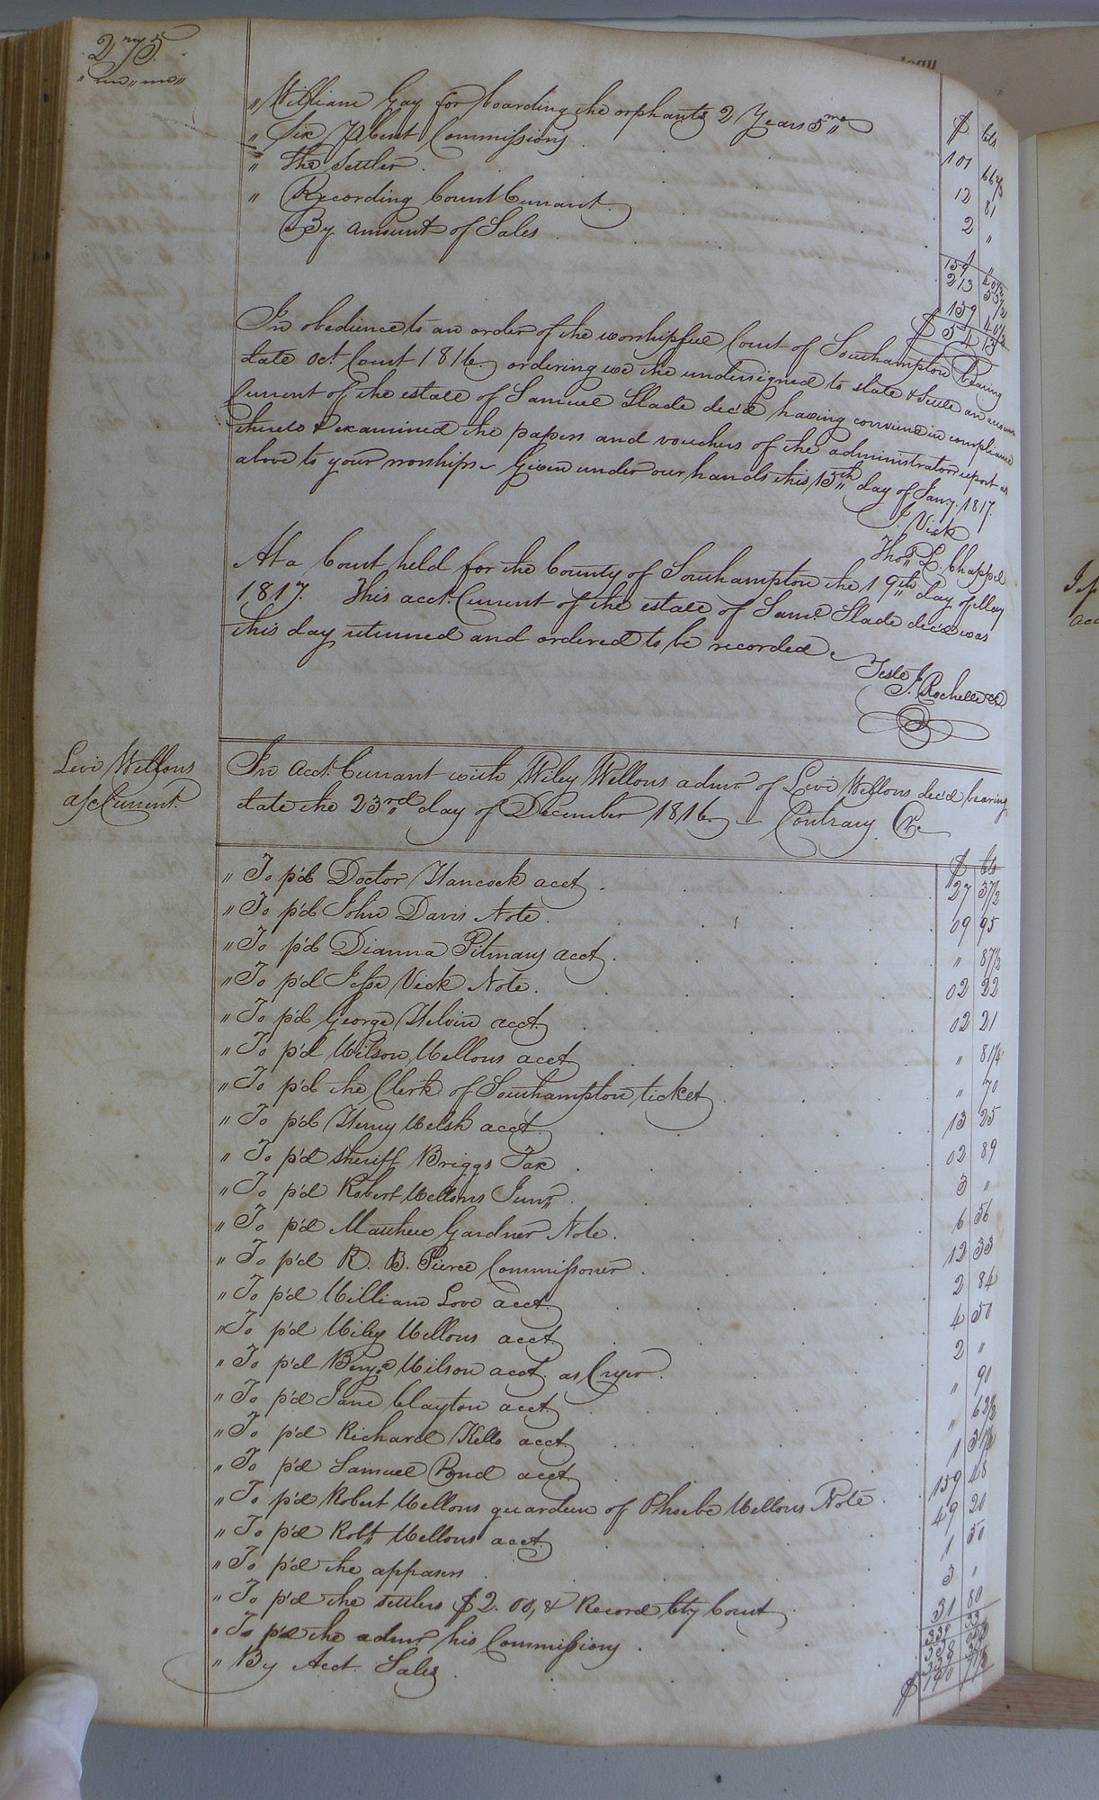 275
" William Gay for boarding the orphants 2 Years 5 mo
$ Cts
" Six P Cent Commissions
101 66 2/3
" The Settler
12 81
" Recording Count Currant
2 "
By amount of Sales
159 40 1/2
213 53 1/2
159 40 1/2
$ 54 13
In obedience to an order of the worshipfull Court of Southampton bearing
date Oct. Court 1816. ordering we the undersigned to state & settle an account
Current of the estate of Samuel Slade dec'd having convened in compliance
thereto & examined the papers and vouchers of the administrator report as
above to your worships Given under our hands this 15th day of Jany. 1817.
J. Vick
Thos. L. Chappel
At a Court held for the County of Southampton the 19th day of May
1817. This acct. Current of the estate of Saml. Slade dec'd was
this day returned and ordered to be recorded
Teste J. Rochelle
Levi Wellons
a/c Current
In Acct. Currant with Wiley Wellons admr. of Levi Wellons dec'd bearing
date the 23rd day of December 1816 Contrary Cr.
$ Cts
" To p'd Doctor Hancock acct 27 37 1/2
" To p'd John Davis Note 09 95
" To p'd Dianna Pitmans acct " 87 1/2
" To p'd Jesse Vick Note 02 22
" To p'd George Helvin acct 02 21
" To p'd Wilson Wellons acct " 81 1/4
" To p'd the Clerk of Southampton ticket " 70
" To p'd Henry Welsh acct 13 25
" To p'd Sheriff Briggs Tax 02 89
" To p'd Robert Wellons Junr. 3 "
" To p'd Matthew Gardner Note 6 56
" To p'd R. B. Pierce Commissioner 12 33
" To p'd William Love acct 2 84
" To p'd Wiley Wellons acct 4 50
" To p'd Benja. Wilson acct as Cryer 2 "
" To p'd Jane Clayton acct " 90
" To p'd Richard Kello acct " 62 1/2
" To p'd Samuel Pond acct 1 31 1/4
" To p'd Robert Wellons guardian of Phoebe Wellons Note 159 48
" To p'd Robt. Wellons acct 49 20
" To p'd the apprasers 1 50
" To p'd the settlers $2.00, & Record by Court 3 "
" To p'd the admr his Commissions 31 80
" By Acct. Sales